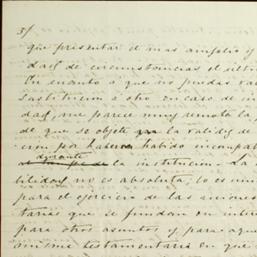 3ƒ
que presentar el mas amplio y
dad de circunstancias el ultim
En cuanto á que no puedas va
sustitucion á otro en caso de in
dad, me parece muy remota la
de que se objete la validez de
cion por haber habido incompat
durante la institucion. La
bilidad no es absoluta, lo es un
para el ejercicio de las acciones
tarias que se fundan en inter
para otros asuntos y para aque
mismo testamentaria en que